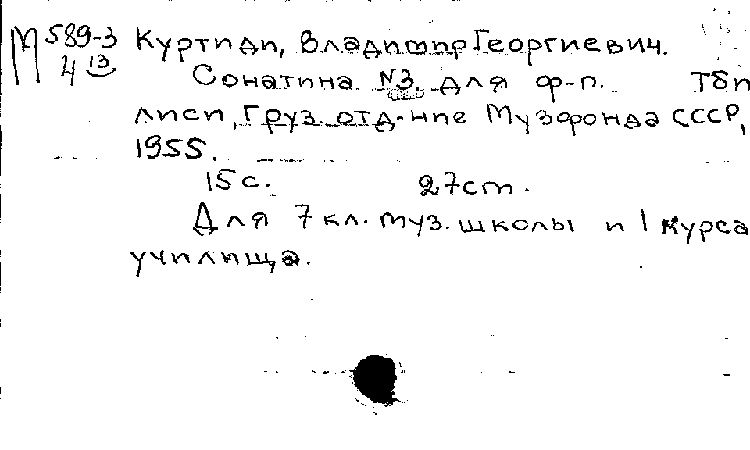 М 589-3 Куртиди, Владимир Георгиевич.
4 13 Сонатина №3. для ф-п. Тби
лиси, Груз. отд-ние Музфонда СССР,
1955.
15 с. 27 cm.
Для 7 кл. муз. школы и 1 курса
училища.